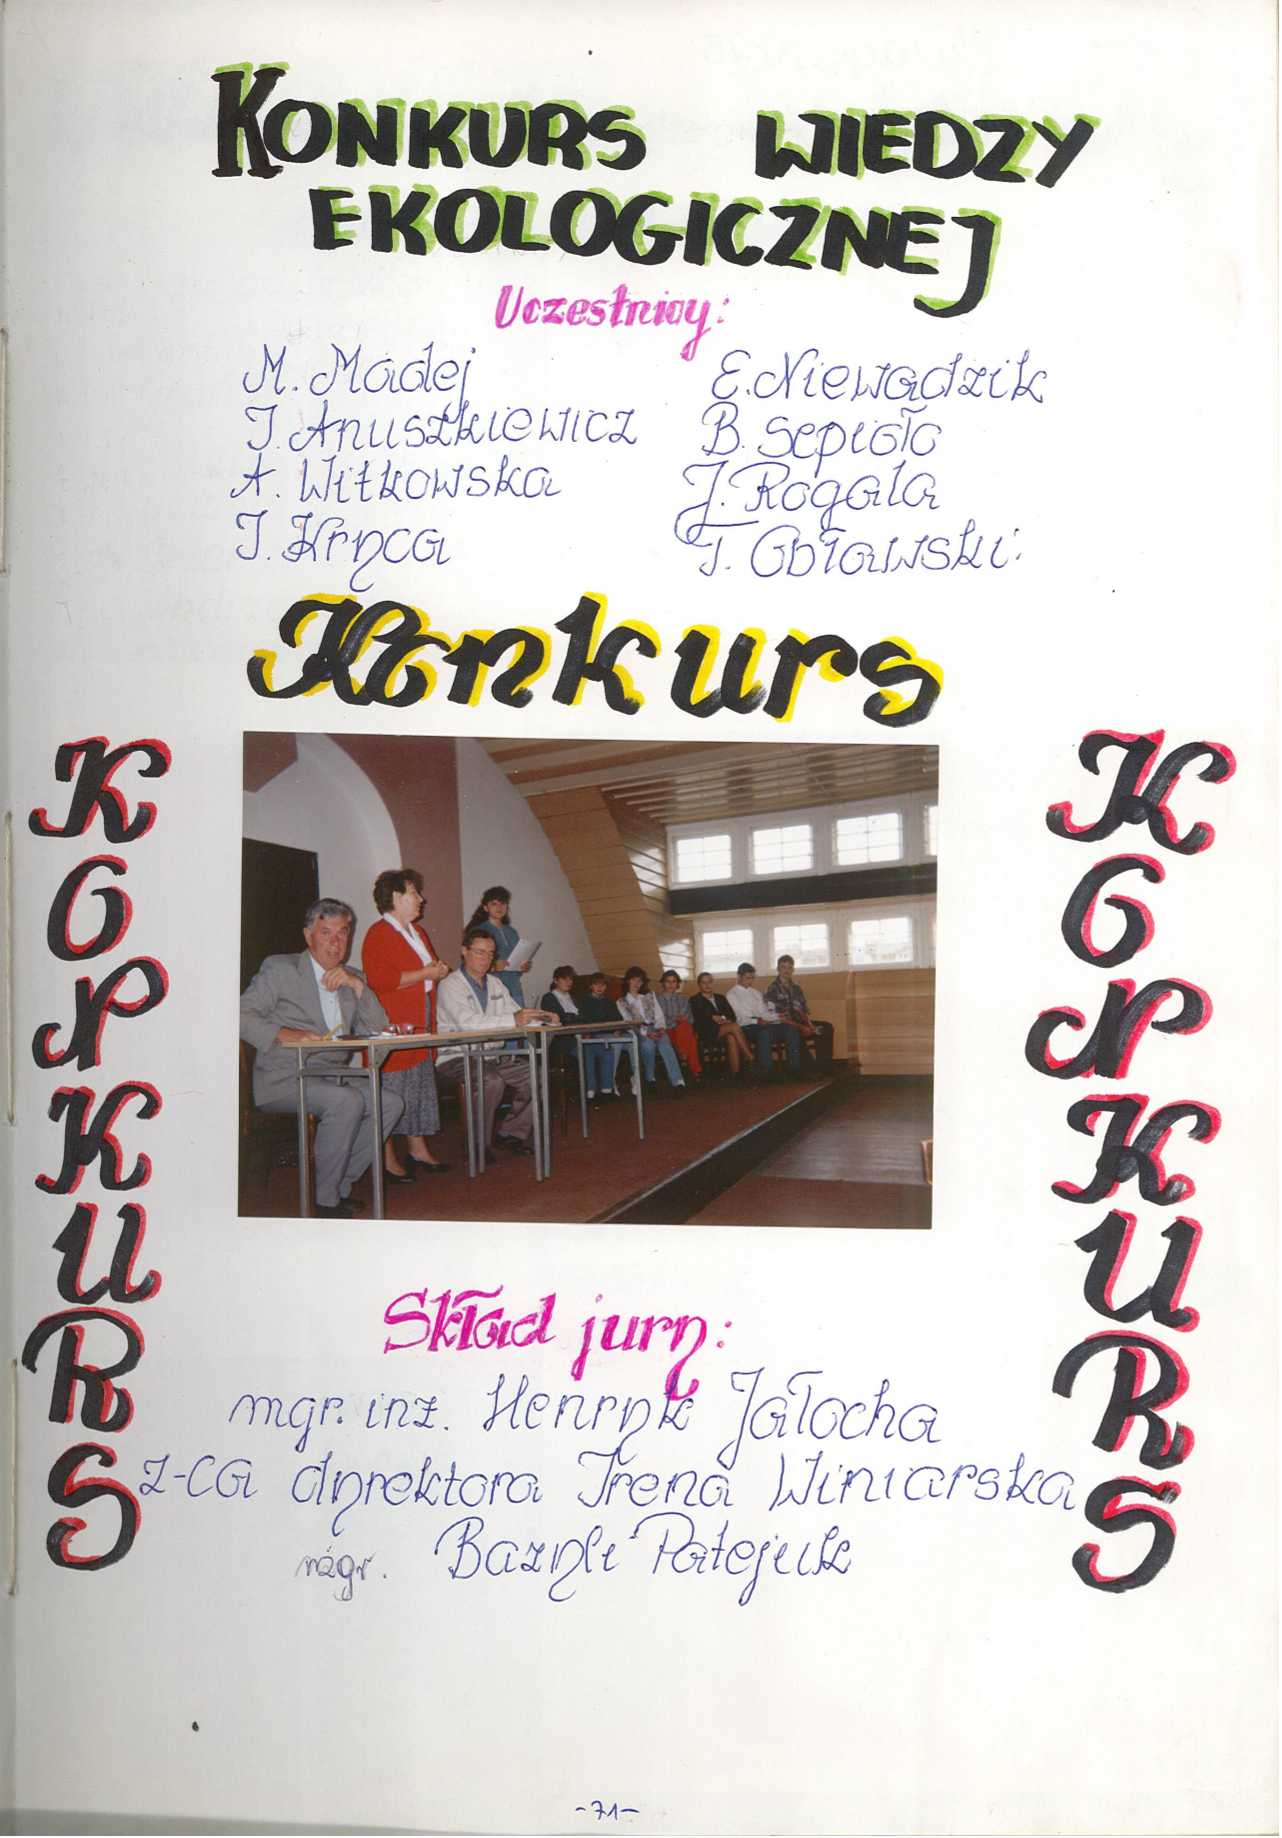 KONKURS WIEDZY
EKOLOGICZNEJ
Uczestnicy:
M. Madej
J. Anuszkiewicz
A. Witkowska
J. Kryca
E. Niewadzik
B. Sepioło
J. Rogala
T. Obławski
Konkurs
KONKURS
KONKURS
Skład jury:
mgr. inż. Henryk Jałocha
z-ca dyrektora Irena Winiarska
mgr. Bazyli Patejuk
-71-